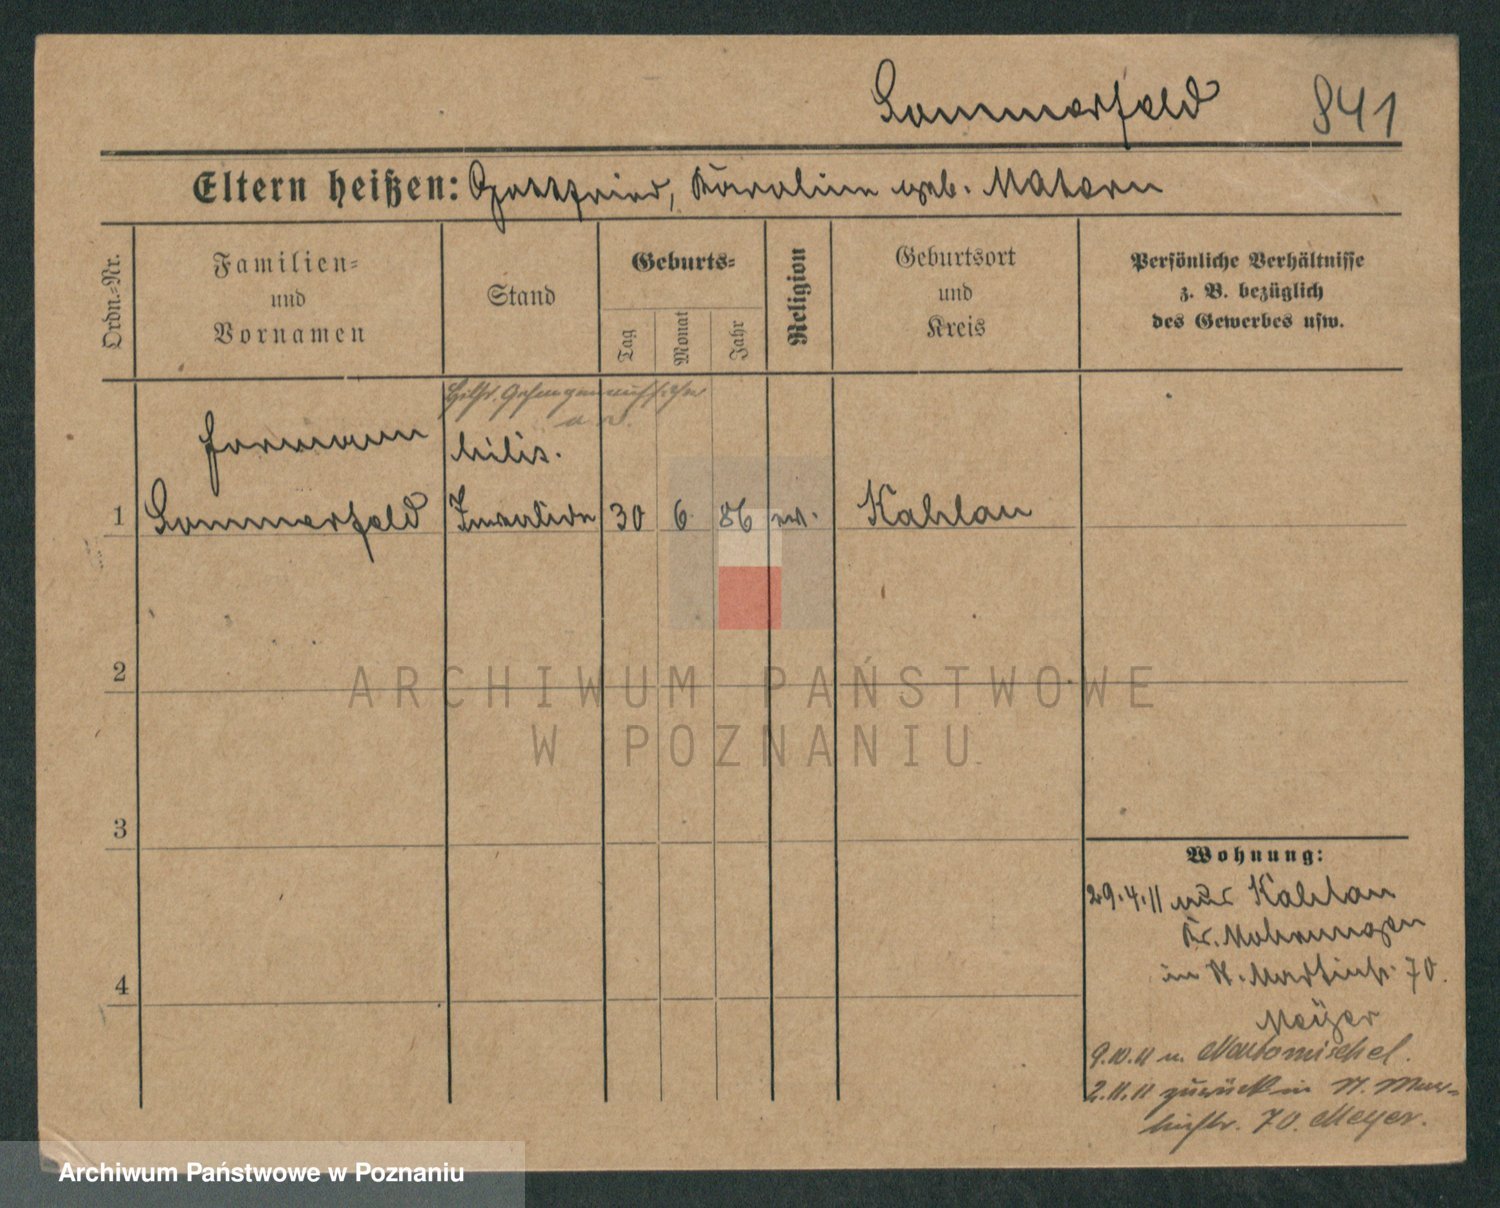 Sommerfeld 841
Eltern heißen: Gottfried, Karoline geb. Matern
Ordn.-Nr.
Familien-
und
Vornamen
Stand
Geburts-
Tag
Monat
Jahr
Religion
Geburtsort
und
Kreis
Persönliche Verhältnisse
z. B. bezüglich
des Gewerbes usw.
Hilfs. Gefangenaufseher
a. D.
Hermann
milit.
1 Sommerfeld Invalide 30 6 86 ev. Kahlau
2
3
4
Wohnung:
29.4.11 aus Kahlau
Kr. Mohrungen
in St. Martinstr. 70.
Meÿer
9.10.11 n.
2.11.11 zurück in St. Mar-
tinstr. 70. Meyer.
ARCHIWUM PAŃSTWOWE
W POZNANIU
Archiwum Państwowe w Poznaniu